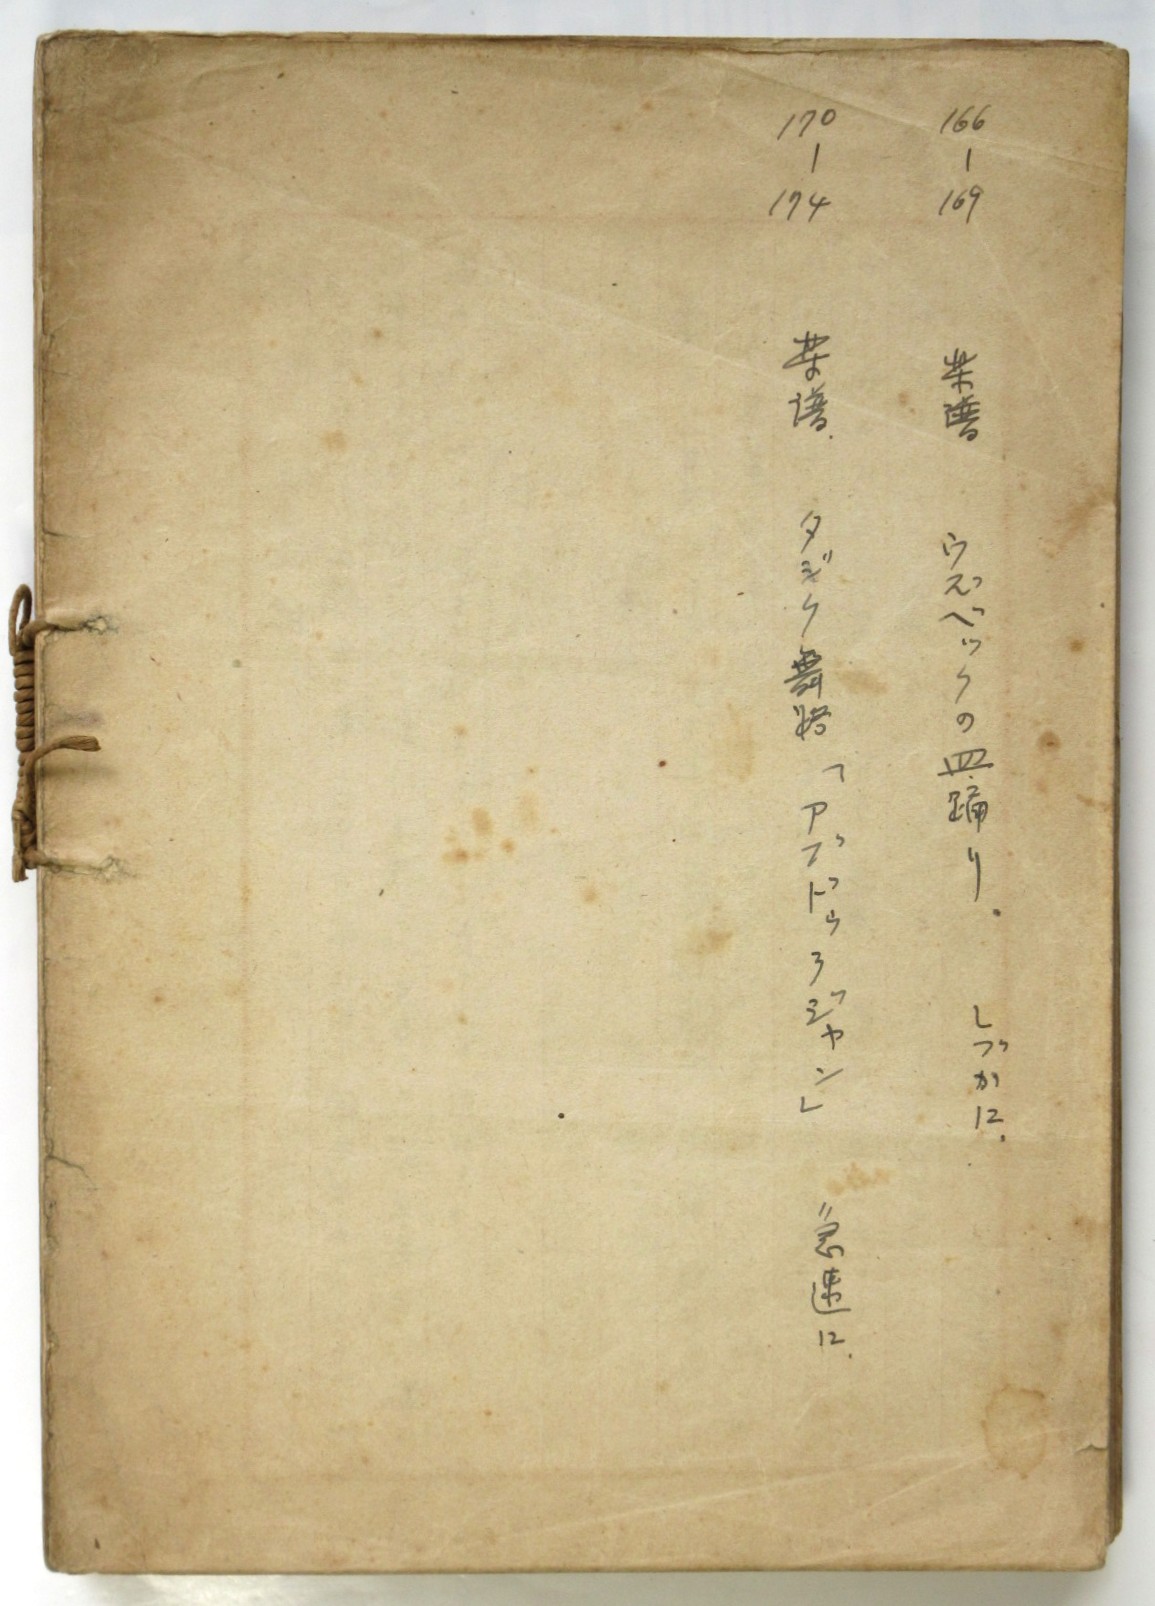 166-169 楽譜 ウズベックの皿踊り. しづかに.
170-174 楽譜. タジク舞踊「アブドゥラジャン」 急速に.